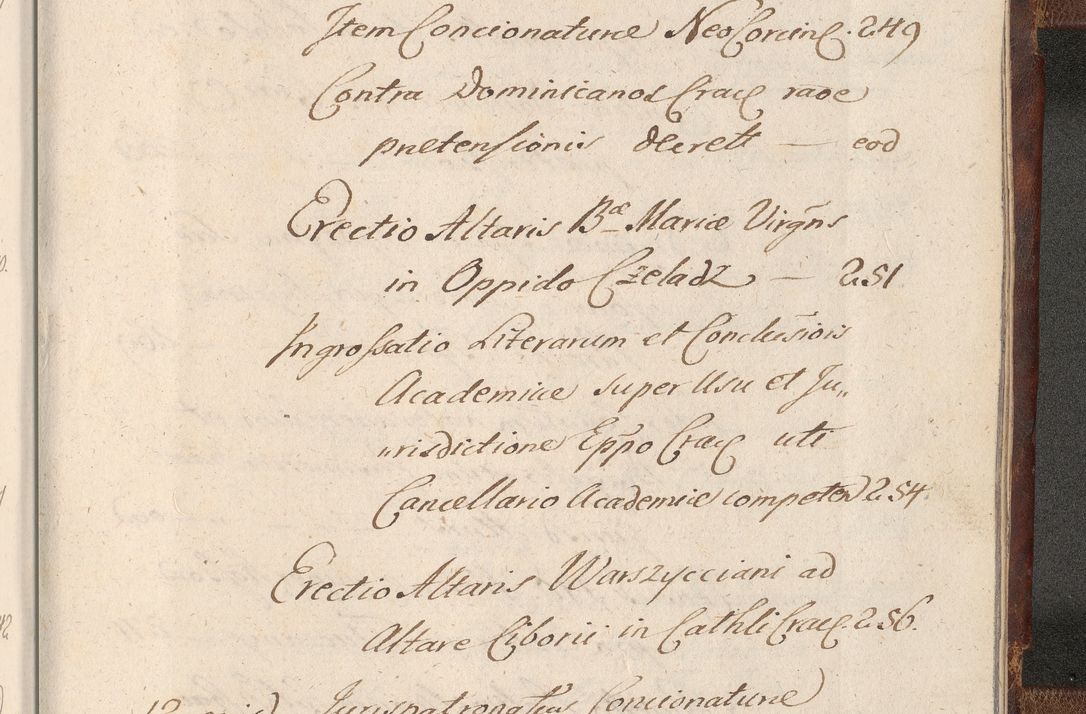 Item Concionaturæ NeoCorcin. 249
Contra Dominicanos Crac raoe
prætensionis decrett — eod
Erectio Altaris Bæ Mariæ Virgñs
in Oppido Czeladz — 251
Ingrossatio Literarum et Conclusiõis
Academiæ super Usu et Ju„
„risdictione Eppo Crac uti
Cancellario Academiæ competeñ 254.
Erectio Altaris Warszycciani ad
Altare Ciborii in Cathli Crac. 256.
Jurispatronatus Concionaturæ